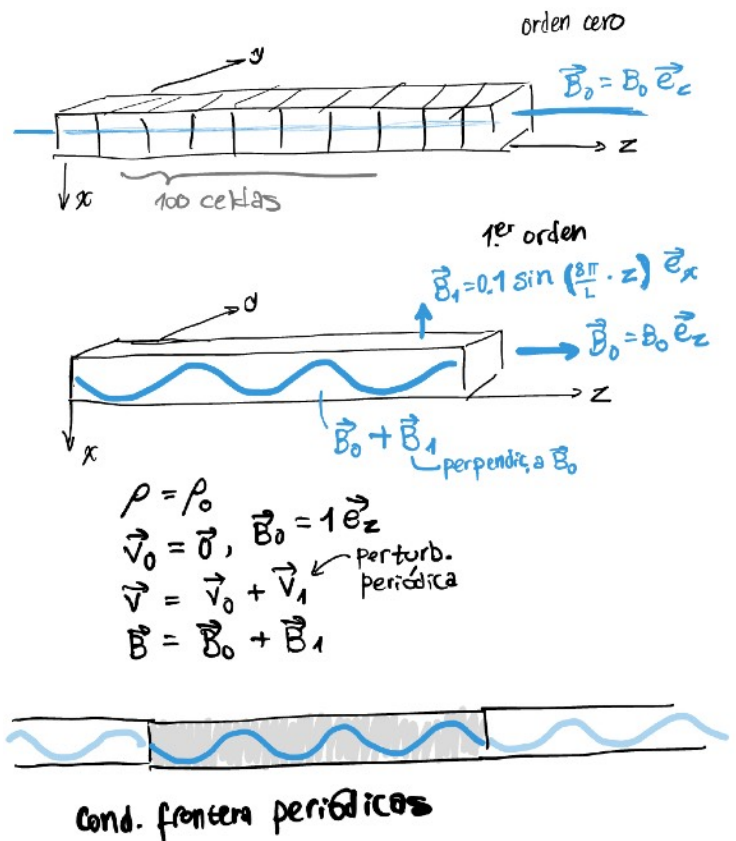 orden cero
y
B⃗₀ = B₀ e⃗z
z
x
100 celdas
1.er orden
B⃗₁ = 0.1 sin (8π/L · z) e⃗x
B⃗₀ = B₀ e⃗z
z
x
B⃗₀ + B⃗₁
perpendic. a B⃗₀
ρ = ρ₀
v⃗₀ = 0⃗, B⃗₀ = 1 e⃗z
v⃗ = v⃗₀ + v⃗₁ perturb. periódica
B⃗ = B⃗₀ + B⃗₁
Cond. frontera periódicas